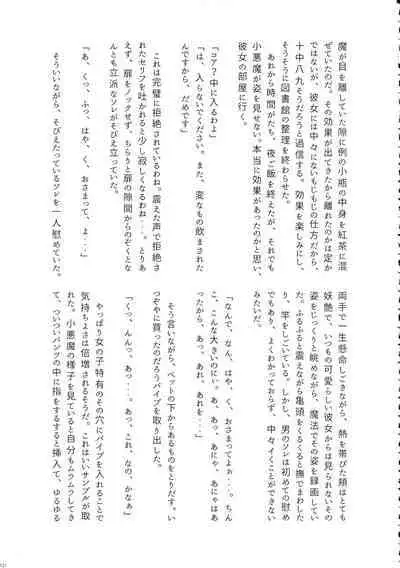 魔が目を離していた隙に例の小瓶の中身を紅茶に混
ぜていたのだ。その効果が出てきたから離れたのかは定か
ではないが、彼女には中々にないもじもじの仕方だから、
十中八九そうだろうと過信する。効果を楽しみにし、
そうそうに図書館の整理を終わらせた。
あれから時間がたち、夜ご飯を終えたが、それでも
小悪魔が姿を見せない。本当に効果があったのかと思い、
彼女の部屋に行く。
「コア?中に入るわよ」
「は、入らないでください。また、変なもの飲まされた
んですから、だめです」
これは完璧に拒絶されているわね。震えた声で拒絶さ
れたセリフを吐かれると少し寂しくなるわね・・・。とりあ
えず、扉をノックせず、ちらりと扉の隙間からのぞくとな
んとも立派なソレがそびえ立っていた。
「あ、くっ、ふっ、はや、く、おさまって、よ・・・」
そういいながら、そびえたっているソレを一人慰めていた。
両手で一生懸命しごきながら、熱を帯びた頬はとても
妖艶で、いつもの可愛らしい彼女からは見られないその
姿をじっくりと眺めながら、魔法でその姿を録画してい
た。ふるふると震えながら亀頭をくるくると撫でまわした
り、竿をしごいている。しかし、男のソレは初めての慰め
でもあり、よくわかっておらず、中々イくことができない
みたいだ。
「なんで、なん、はや、く、おさまってよぉ・・・。ちん
こ、こんな大きいのにぃ。あ、あっ、あにゃ、あにゃはあ
ったから、あっ、あれ、あれを・・・」
そう言いながら、ベットの下からあるものをとりだす。い
つぞやに買ったのだろうバイブを取り出した。
「くっ、んんっ、あっ・・・あっ、これ、なの、かなぁ」
やっぱり女の子特有のその穴にバイブを入れることで
気持ちよさは倍増されるそうだ。これはいいサンプルが取
れた。小悪魔の様子を見ていると自分もムラムラしてき
て、ついついパンツの中に指をするすると挿入て、ゆるゆる